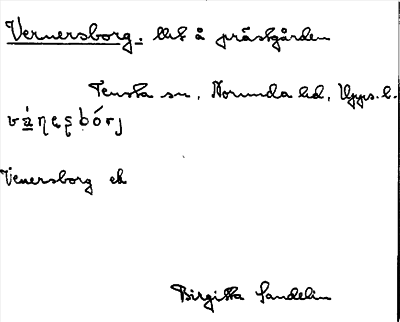 Vernersborg. litt å prästgården
Tensta sn, Norunda hd, Upps. l.
vánesbórj
Venersborg ek
Birgitta Sandelin